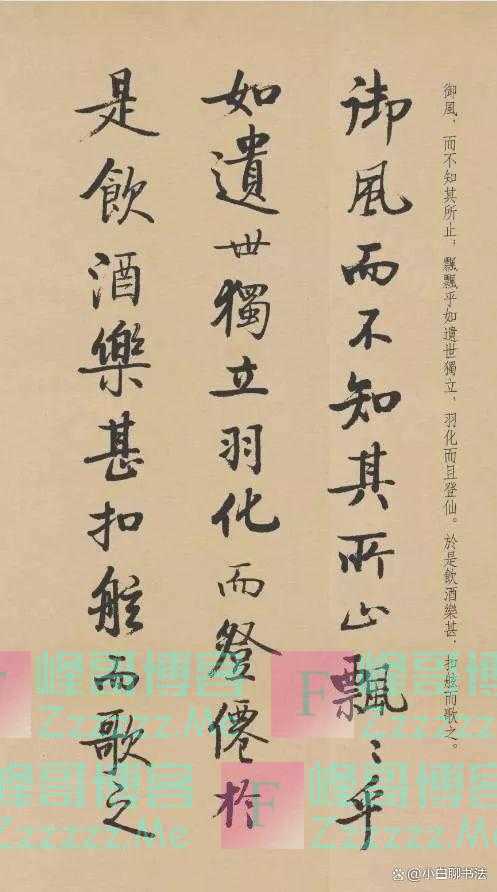 御風，而不知其所止；飄飄乎如遺世獨立，羽化而且登仙。於是飲酒樂甚，扣舷而歌之。
御風而不知其所止飄〻乎
如遺世獨立羽化而登僊於
是飲酒樂甚扣舷而歌之
峰哥博客
Zzzzzz.Me
F
峰哥博客
Zzzzzz.Me
F
峰哥博客
Zzzzzz.Me
F
峰哥博客
Zzzzzz.Me
@小白聊书法